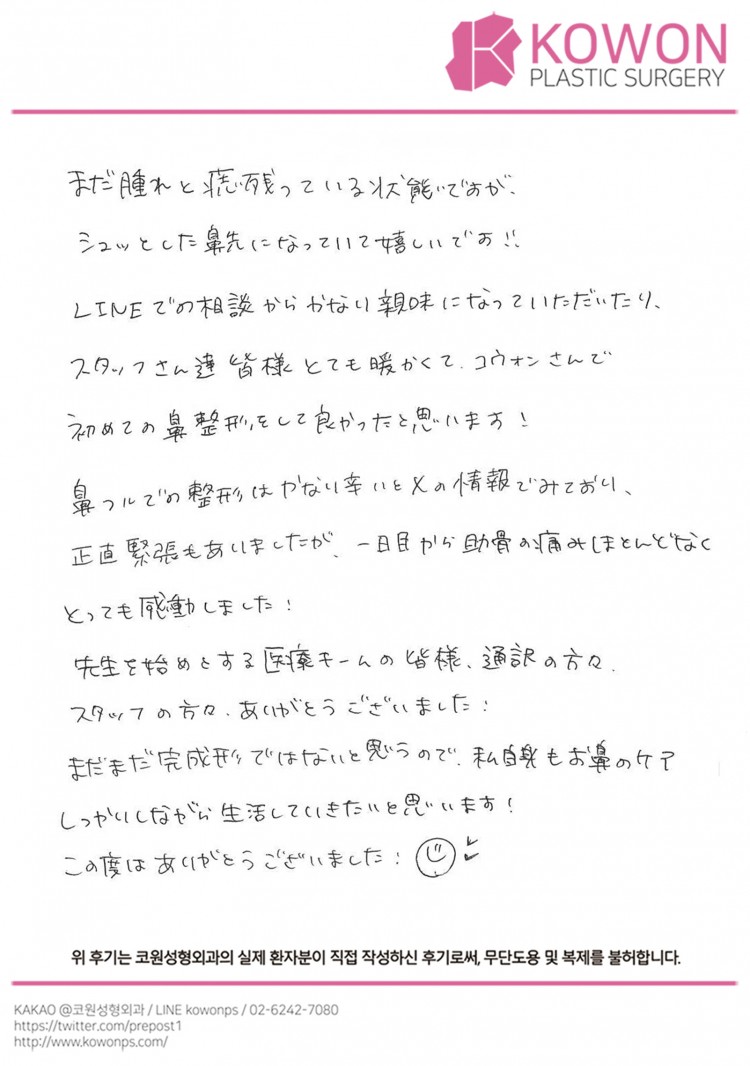 KOWON
PLASTIC SURGERY
まだ腫れと痣残っている状態ですが、
シュッとした鼻先になっていて嬉しいです!!
LINEでの相談からかなり親味になっていただいたり、
スタッフさん達皆様とても暖かくて、コウォンさんで
初めての鼻整形をして良かったと思います!
鼻フルでの整形はかなり辛いとXの情報でみており、
正直緊張もありましたが、一日目から肋骨の痛みほとんどなく
とっても感動しました!
先生を始めとする医療チームの皆様、通訳の方々、
スタッフの方々、ありがとうございました!
まだまだ完成形ではないと思うので、私自身もお鼻のケア
しっかりしながら生活していきたいと思います!
この度はありがとうございました!
위 후기는 코원성형외과의 실제 환자분이 직접 작성하신 후기로써, 무단도용 및 복제를 불허합니다.
KAKAO @코원성형외과 / LINE kowonps / 02-6242-7080
https://twitter.com/prepost1
http://www.kowonps.com/